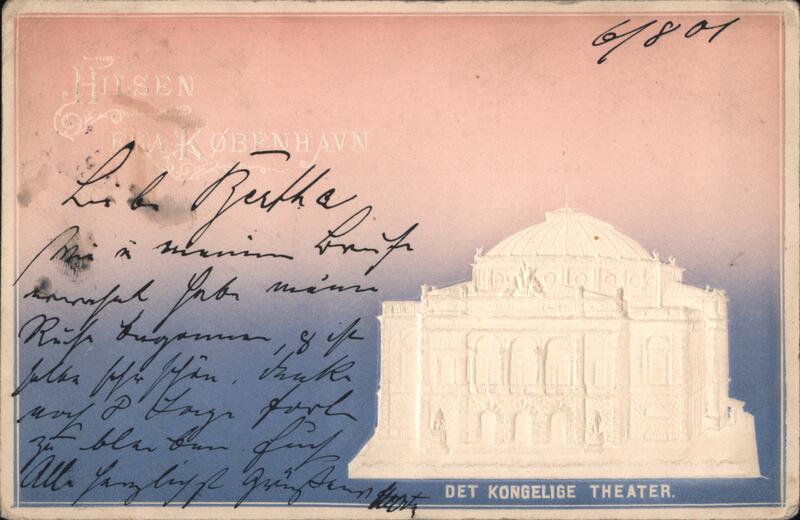 6/8 01
HILSEN
FRA KØBENHAVN
Liebe Bertha
Wie in meinem Briefe
erwähnt habe meine
Reise begonnen, & ist
selbe sehr schön, denke
noch 8 Tage fort
zu bleiben. Euch
Alle herzlichst grüßend
DET KONGELIGE THEATER.